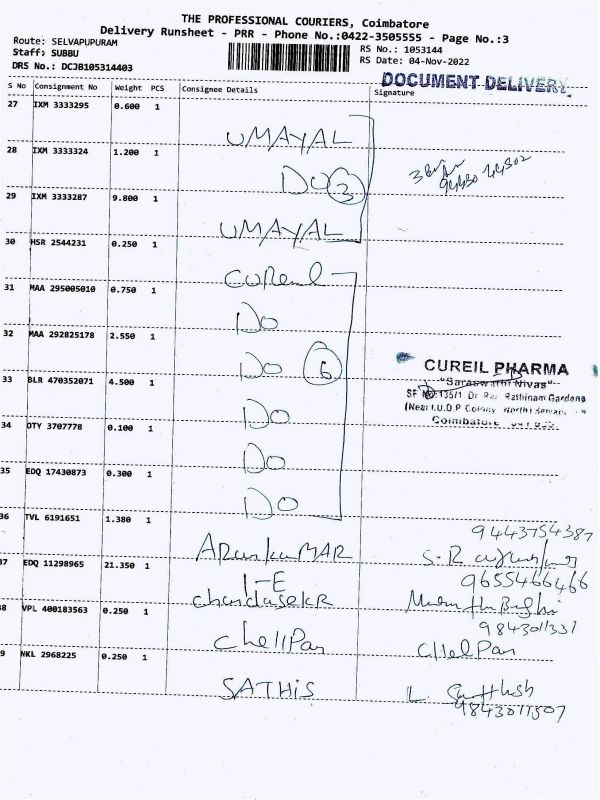 THE PROFESSIONAL COURIERS, Coimbatore
Delivery Runsheet - PRR - Phone No.:0422-3505555 - Page No.:3
Route: SELVAPUPURAM
RS No.: 1053144
Staff: SUBBU
RS Date: 04-Nov-2022
DRS No.: DCJB105314403
DOCUMENT DELIVERY
S No Consignment No Weight PCS Consignee Details Signature
27 IXM 3333295 0.600 1 UMAYAL
28 IXM 3333324 1.200 1 DO 3
94430 44502
29 IXM 3333287 9.800 1 UMAYAL
30 HSR 2544231 0.250 1 Cureil
31 MAA 295005010 0.750 1 DO
32 MAA 292825178 2.550 1 DO 6
CUREIL PHARMA
"Saraswathi Nivas"
SF No: 135/1 Dr Rathinam Gardens
33 BLR 470352071 4.500 1 DO
(Near T.U.D.P Colony North)
Coimbatore
34 OTY 3707778 0.100 1 DO
35 EDQ 17430873 0.300 1 DO
36 TVL 6191651 1.380 1 ArunkuMAR
9443754387
S.R
37 EDQ 11298965 21.350 1 I-E
9655466466
chandrasekR
38 VPL 400183563 0.250 1 chellPan
9843011331
CHelPan
39 NKL 2968225 0.250 1 SATHiS
L. Satthish
9843011507